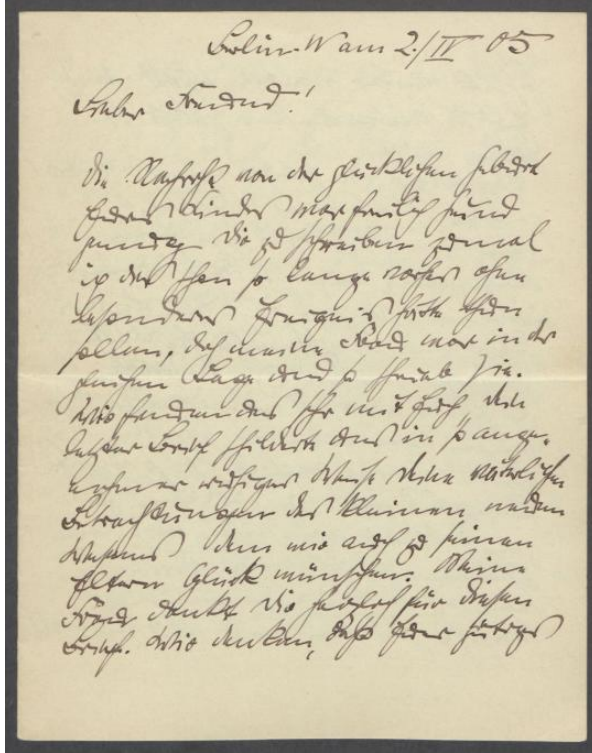 Berlin-W am 2./IV 05
Lieber Freund!
Die Nachricht von der glücklichen Geburt
Eures Kindes war freilich Grund
genug Dir zu schreiben zumal
ich das schon so lange vorher ohne
besonderes Ereignis hätte thun
sollen, doch meine Frau war in der
gleichen Lage und so schrieb sie.
Wir freuen uns sehr mit Euch, Dein
letzter Brief schildert uns in so ange-
nehmer ruhiger Weise Deine väterlichen
Betrachtungen des kleinen neuen
Wesens dem wir auch zu seinen
Eltern Glück wünschen. Meine
Frau dankt Dir herzlich für diesen
Brief. Wir denken, daß Euer